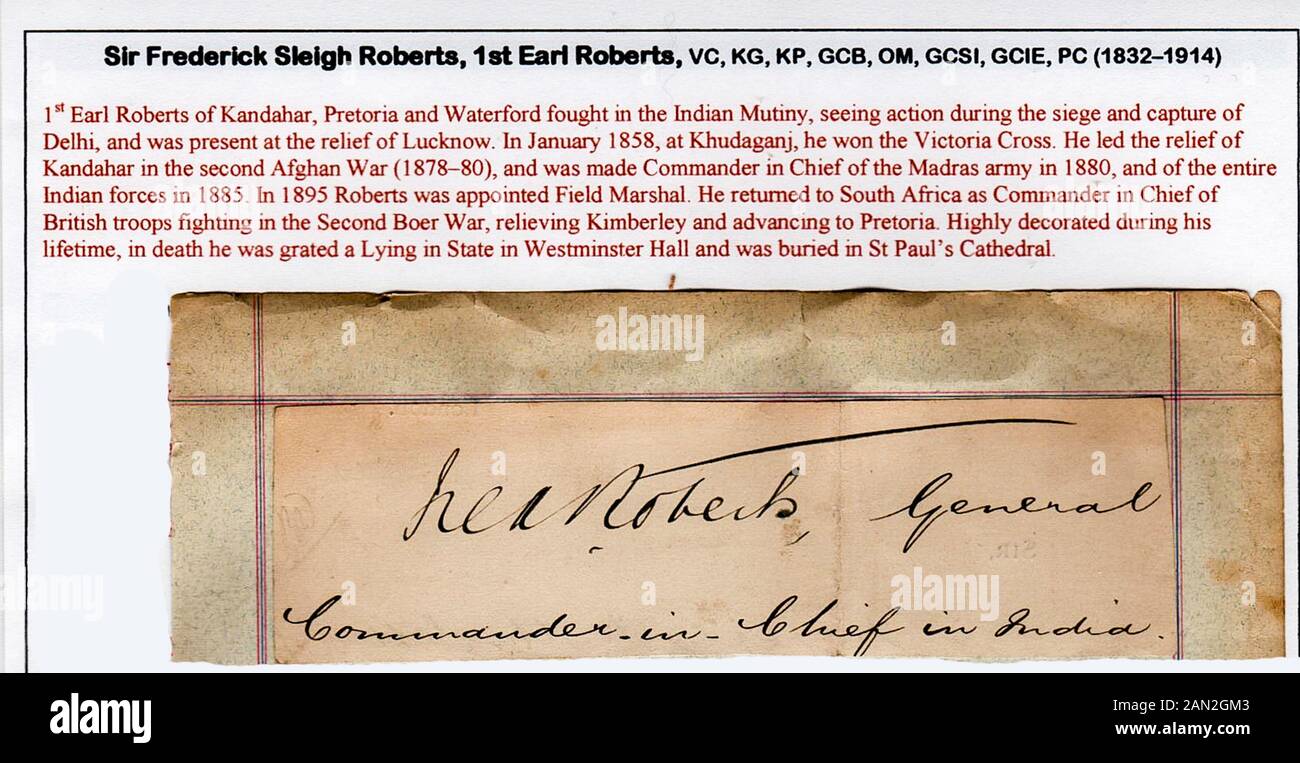 Sir Frederick Sleigh Roberts, 1st Earl Roberts, VC, KG, KP, GCB, OM, GCSI, GCIE, PC (1832–1914)
1st Earl Roberts of Kandahar, Pretoria and Waterford fought in the Indian Mutiny, seeing action during the siege and capture of
Delhi, and was present at the relief of Lucknow. In January 1858, at Khudaganj, he won the Victoria Cross. He led the relief of
Kandahar in the second Afghan War (1878–80), and was made Commander in Chief of the Madras army in 1880, and of the entire
Indian forces in 1885. In 1895 Roberts was appointed Field Marshal. He returned to South Africa as Commander in Chief of
British troops fighting in the Second Boer War, relieving Kimberley and advancing to Pretoria. Highly decorated during his
lifetime, in death he was grated a Lying in State in Westminster Hall and was buried in St Paul's Cathedral.
Fred Roberts, General
SIR,
Commander-in-Chief in India.
alamy
Image ID: 2AN2GM3
www.alamy.com